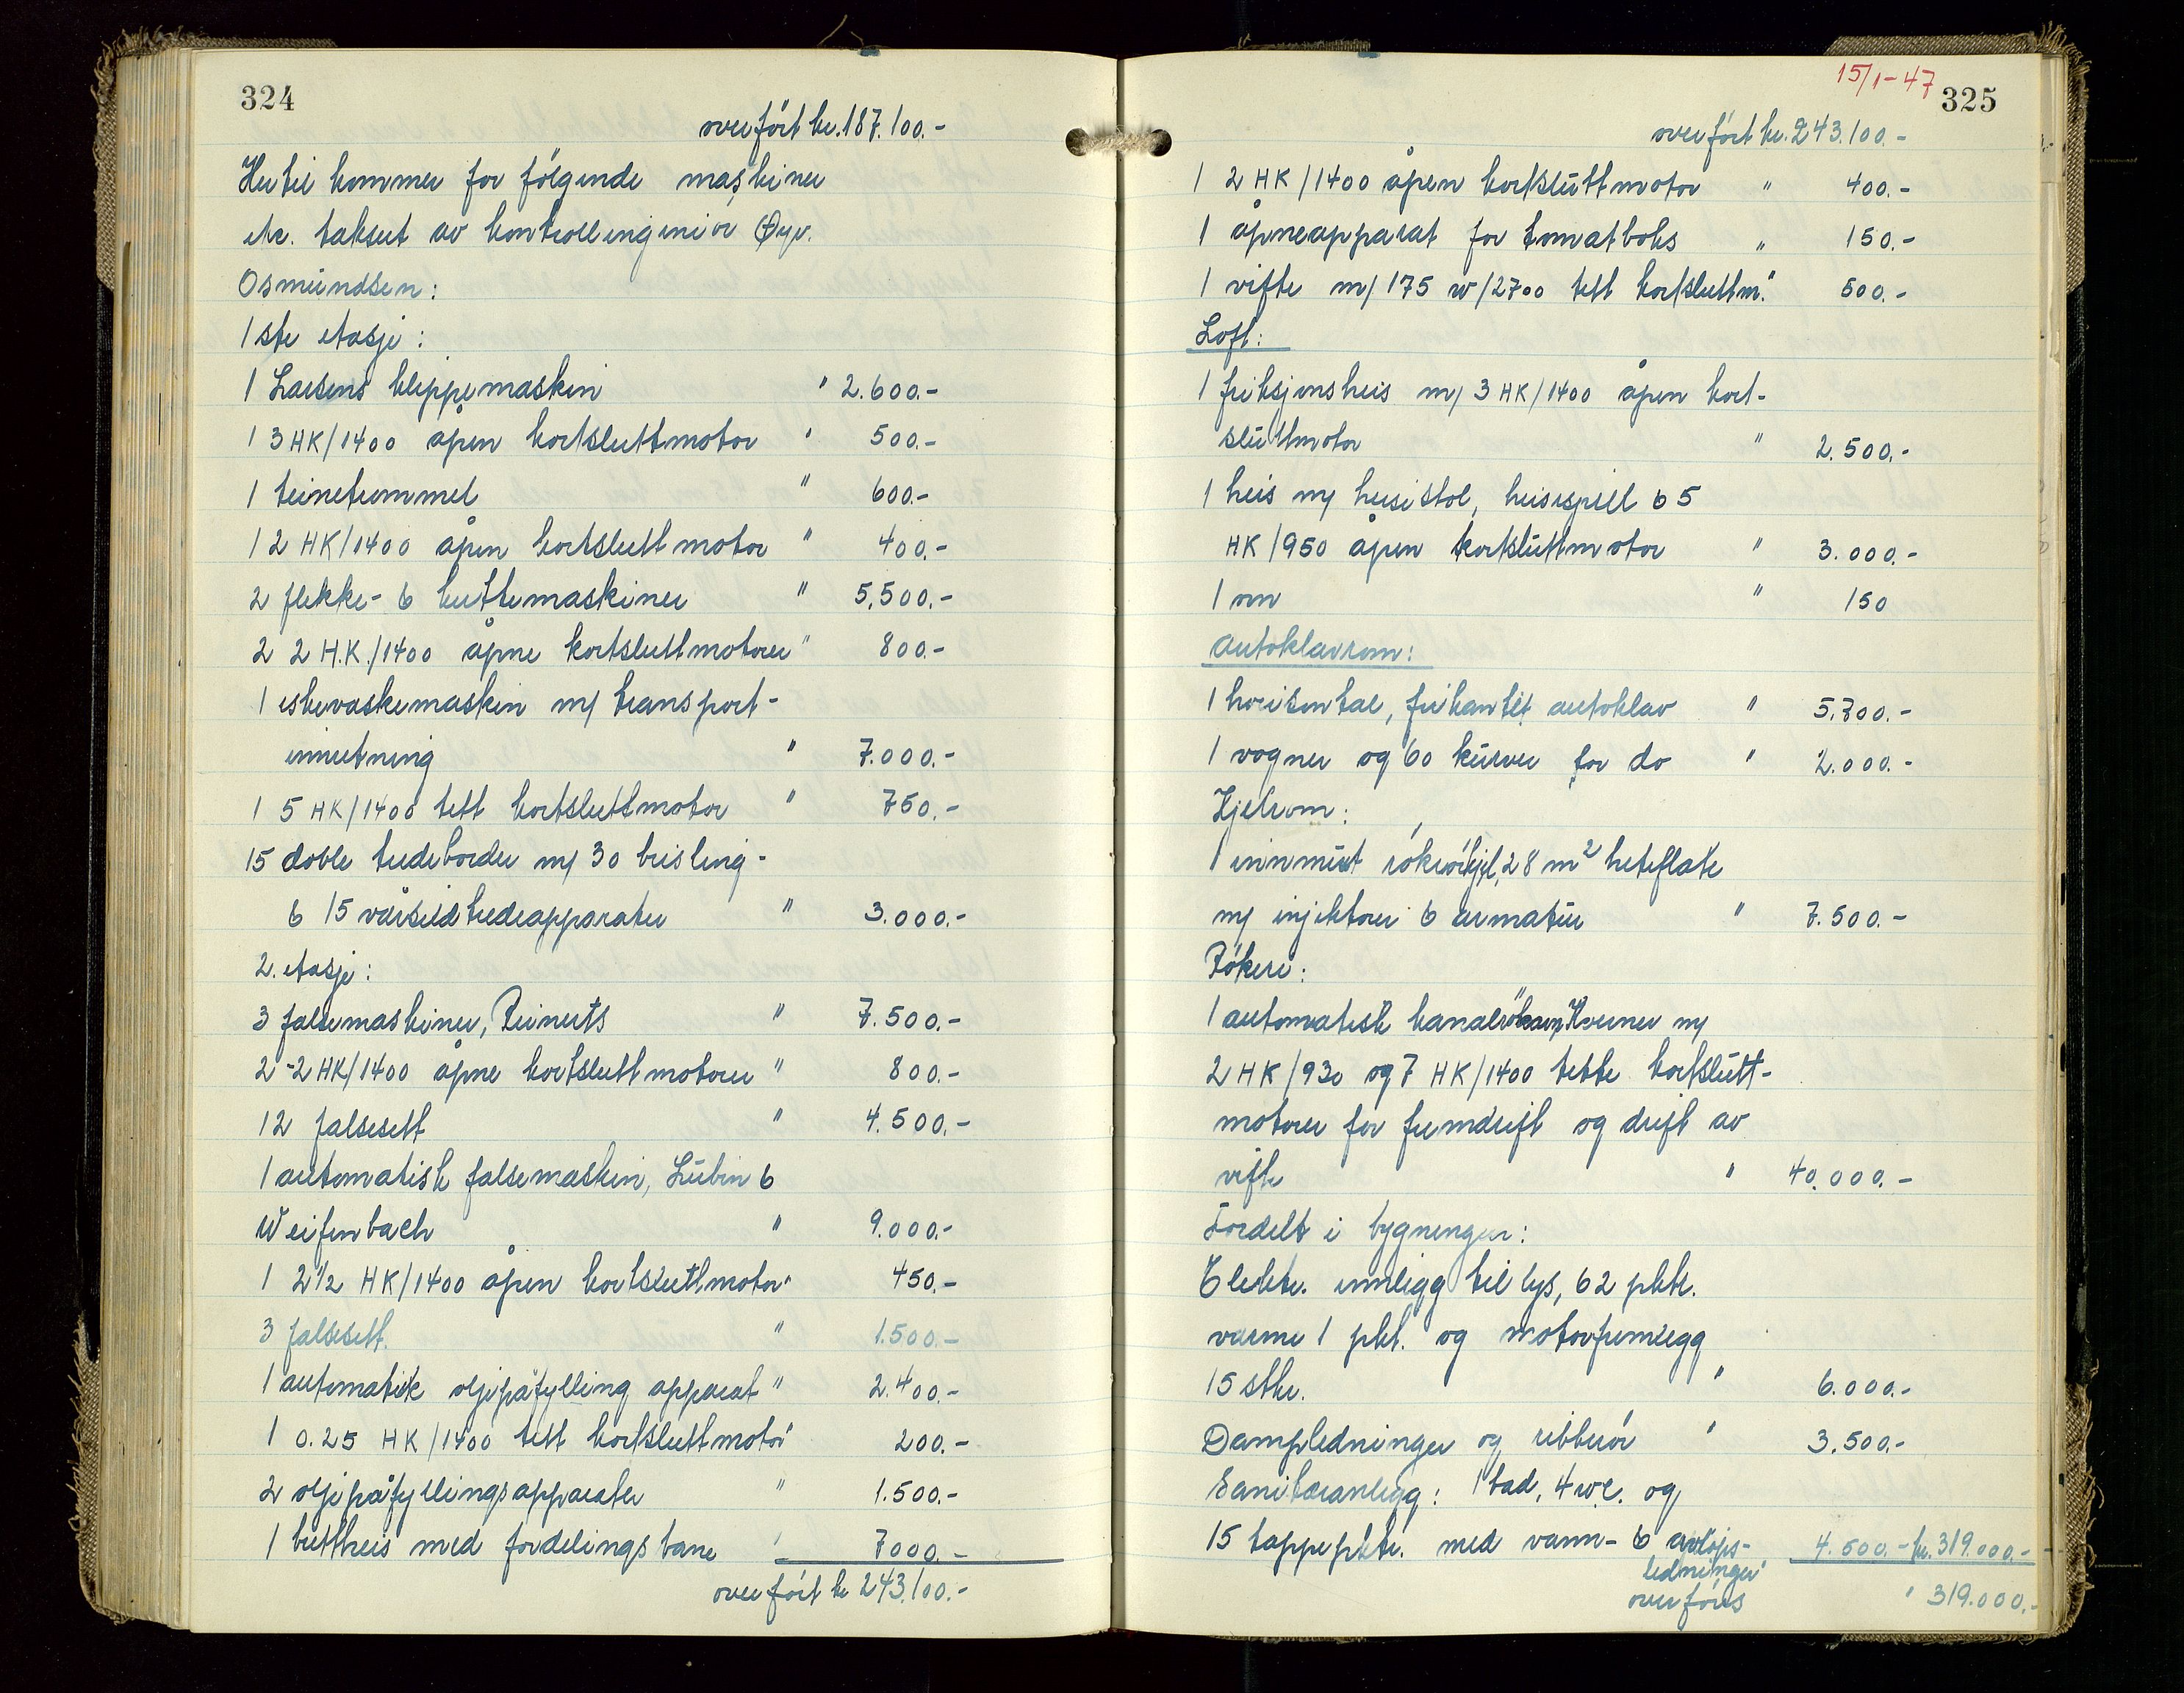 324
overført kr. 187.100.-
Hertil kommer for følgende maskiner
etc. taksert av kontrollingeniør Øyv.
Osmundsen:
1ste etasje:
1 Larsens klippemaskin " 2.600.-
1 3 HK/1400 åpen kortsluttmotor " 500.-
1 teinetrommel " 600.-
1 2 HK/1400 åpen kortsluttmotor " 400.-
2 flekke- & kuttemaskiner " 5.500.-
2 2 H.K./1400 åpne kortsluttmotorer " 800.-
1 eskevaskemaskin m/ transport-
innretning " 7.000.-
1 5 HK/1400 tett kortsluttmotor " 750.-
15 doble tredeborder m/ 30 brisling-
& 15 vårsild tredeapparater " 3.000.-
2. etasje:
3 falsemaskiner, Reinerts " 7.500.-
2-2 HK/1400 åpne kortsluttmotorer " 800.-
12 falsesett " 4.500.-
1 automatisk falsemaskin, Lubin &
Weifenbach " 9.000.-
1 2½ HK/1400 åpen kortsluttmotor " 450.-
3 falsesett. " 1.500.-
1 automatisk oljepåfylling apparat " 2.400.-
1 0.25 HK/1400 tett kortsluttmotor " 200.-
2 oljepåfyllingsapparater " 1.500.-
1 brettheis med fordelingsbane " 7000.-
overført kr 243.100.-
15/1-47
325
overført kr. 243.100.-
1 2 HK/1400 åpen kortsluttmotor " 400.-
1 åpneapparat for tomatboks " 150.-
1 vifte m/ 175 w/2700 tett kortsluttm. " 500.-
Loft:
1 friksjonsheis m/ 3 HK/1400 åpen kort-
sluttmotor " 2.500.-
1 heis m/ heisestol, heisespill & 5
HK/950 åpen kortsluttmotor " 3.000.-
1 ovn " 150
Autoklavrom:
1 horisontal, firkantet autoklav " 5.700.-
1 vogner og 60 kurver for do " 2.000.-
Kjelrom:
1 innmurt røkrørkjel, 28 m² heteflate
m/ injektorer & armatur " 7.500.-
Røkeri:
1 automatisk kanalrøkeovn, Kverner m/
2 HK/930 og 7 HK/1400 tette kortslutt-
motorer for fremdrift og drift av
vifte " 40.000.-
Fordelt i bygningen:
Elektr. innlegg til lys, 62 pkte.
varme 1 pkt. og motorfremlegg
15 stkr. " 6.000.-
Dampledninger og ribberør " 3.500.-
Sanitæranlegg: 1 bad, 4 w.c. og
15 tappepkter. med vann- & avløps-
ledninger " 4.500.- kr. 319.000.-
overføres " 319.000.-